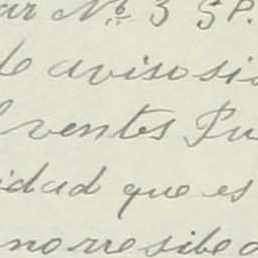 ar No. 3 5 P.
de aviso si
ventes Pu
idad que es
no rresibe